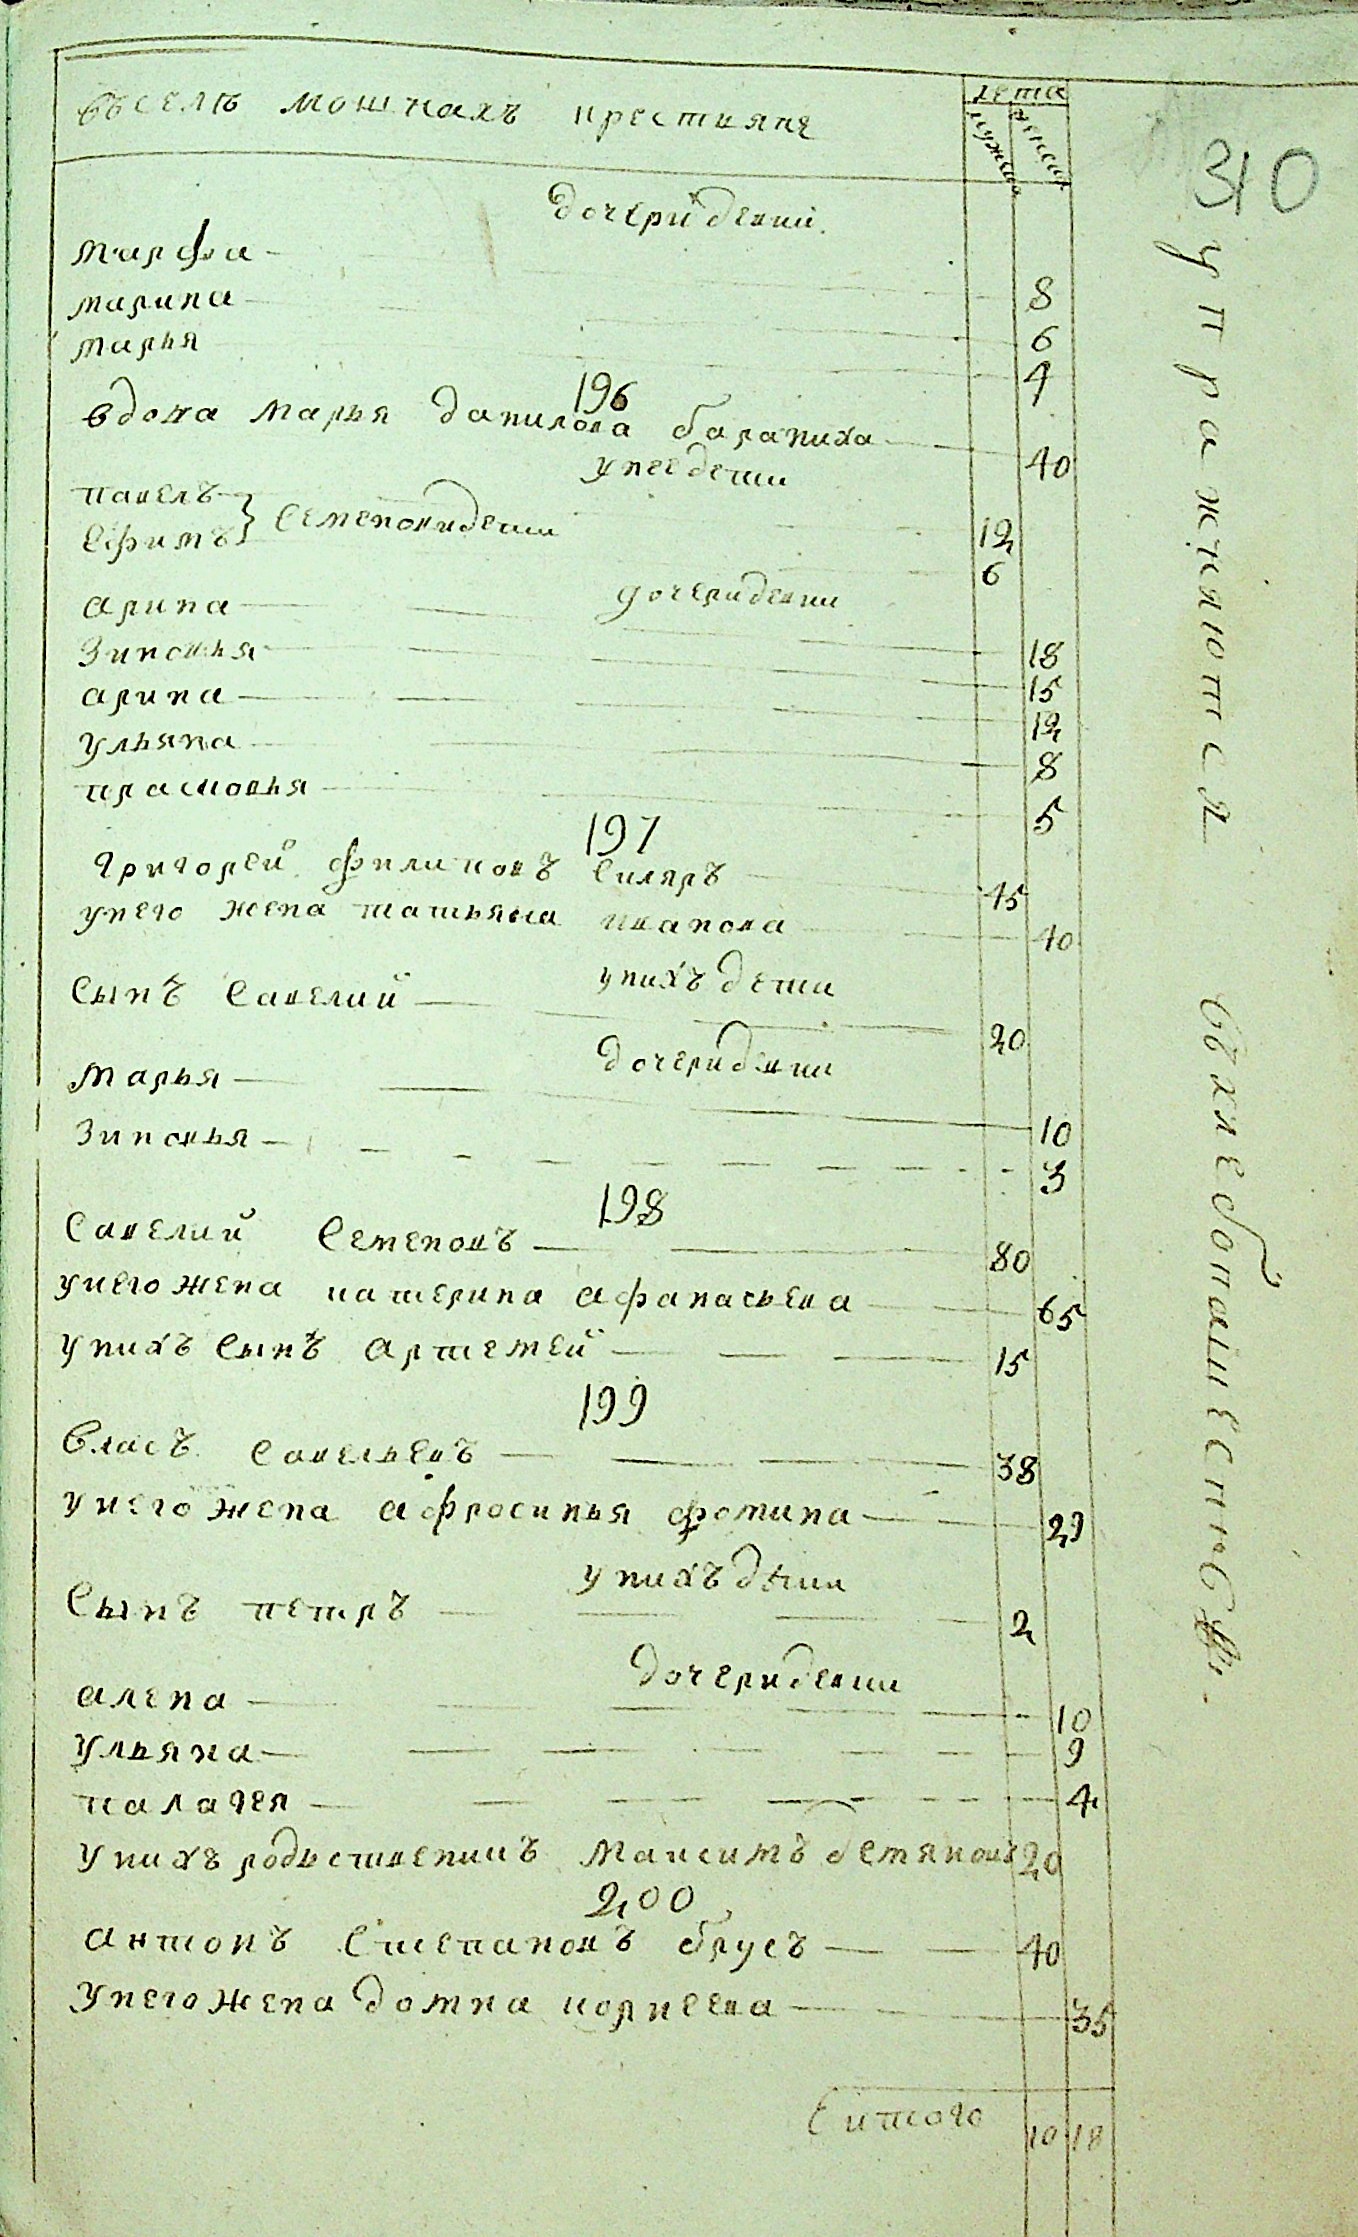 въ селѣ мошнахъ крестияне
лета
мужеск
женск
310
дочери девки
марфа 8
марина 6
марья 4
196
вдова марья данилова бараниха 40
у нее дети
павелъ 12
ефимъ } семеновы дети 6
дочери девки
арина 18
зиновья 15
арина 12
ульяна 8
прасковья 5
197
григорей филиповъ скляръ 45
у него жена татьяна иванова 40
у нихъ дети
сынъ савелий 20
дочери девки
марья 10
зиновья 3
198
савелий семеновъ 80
у него жена катерина афанасьева 65
у нихъ сынъ артемей 15
199
власъ савельевъ 38
у него жена афросинья фомина 29
у нихъ дети
сынъ петръ 2
дочери девки
алена 10
ульяна 9
палагея 4
у нихъ родственникъ максимъ демяновъ 20
200
антонъ степановъ брусъ 40
у него жена домна корнеева 35
итого 10 18
упражняются въ хлебопашестве